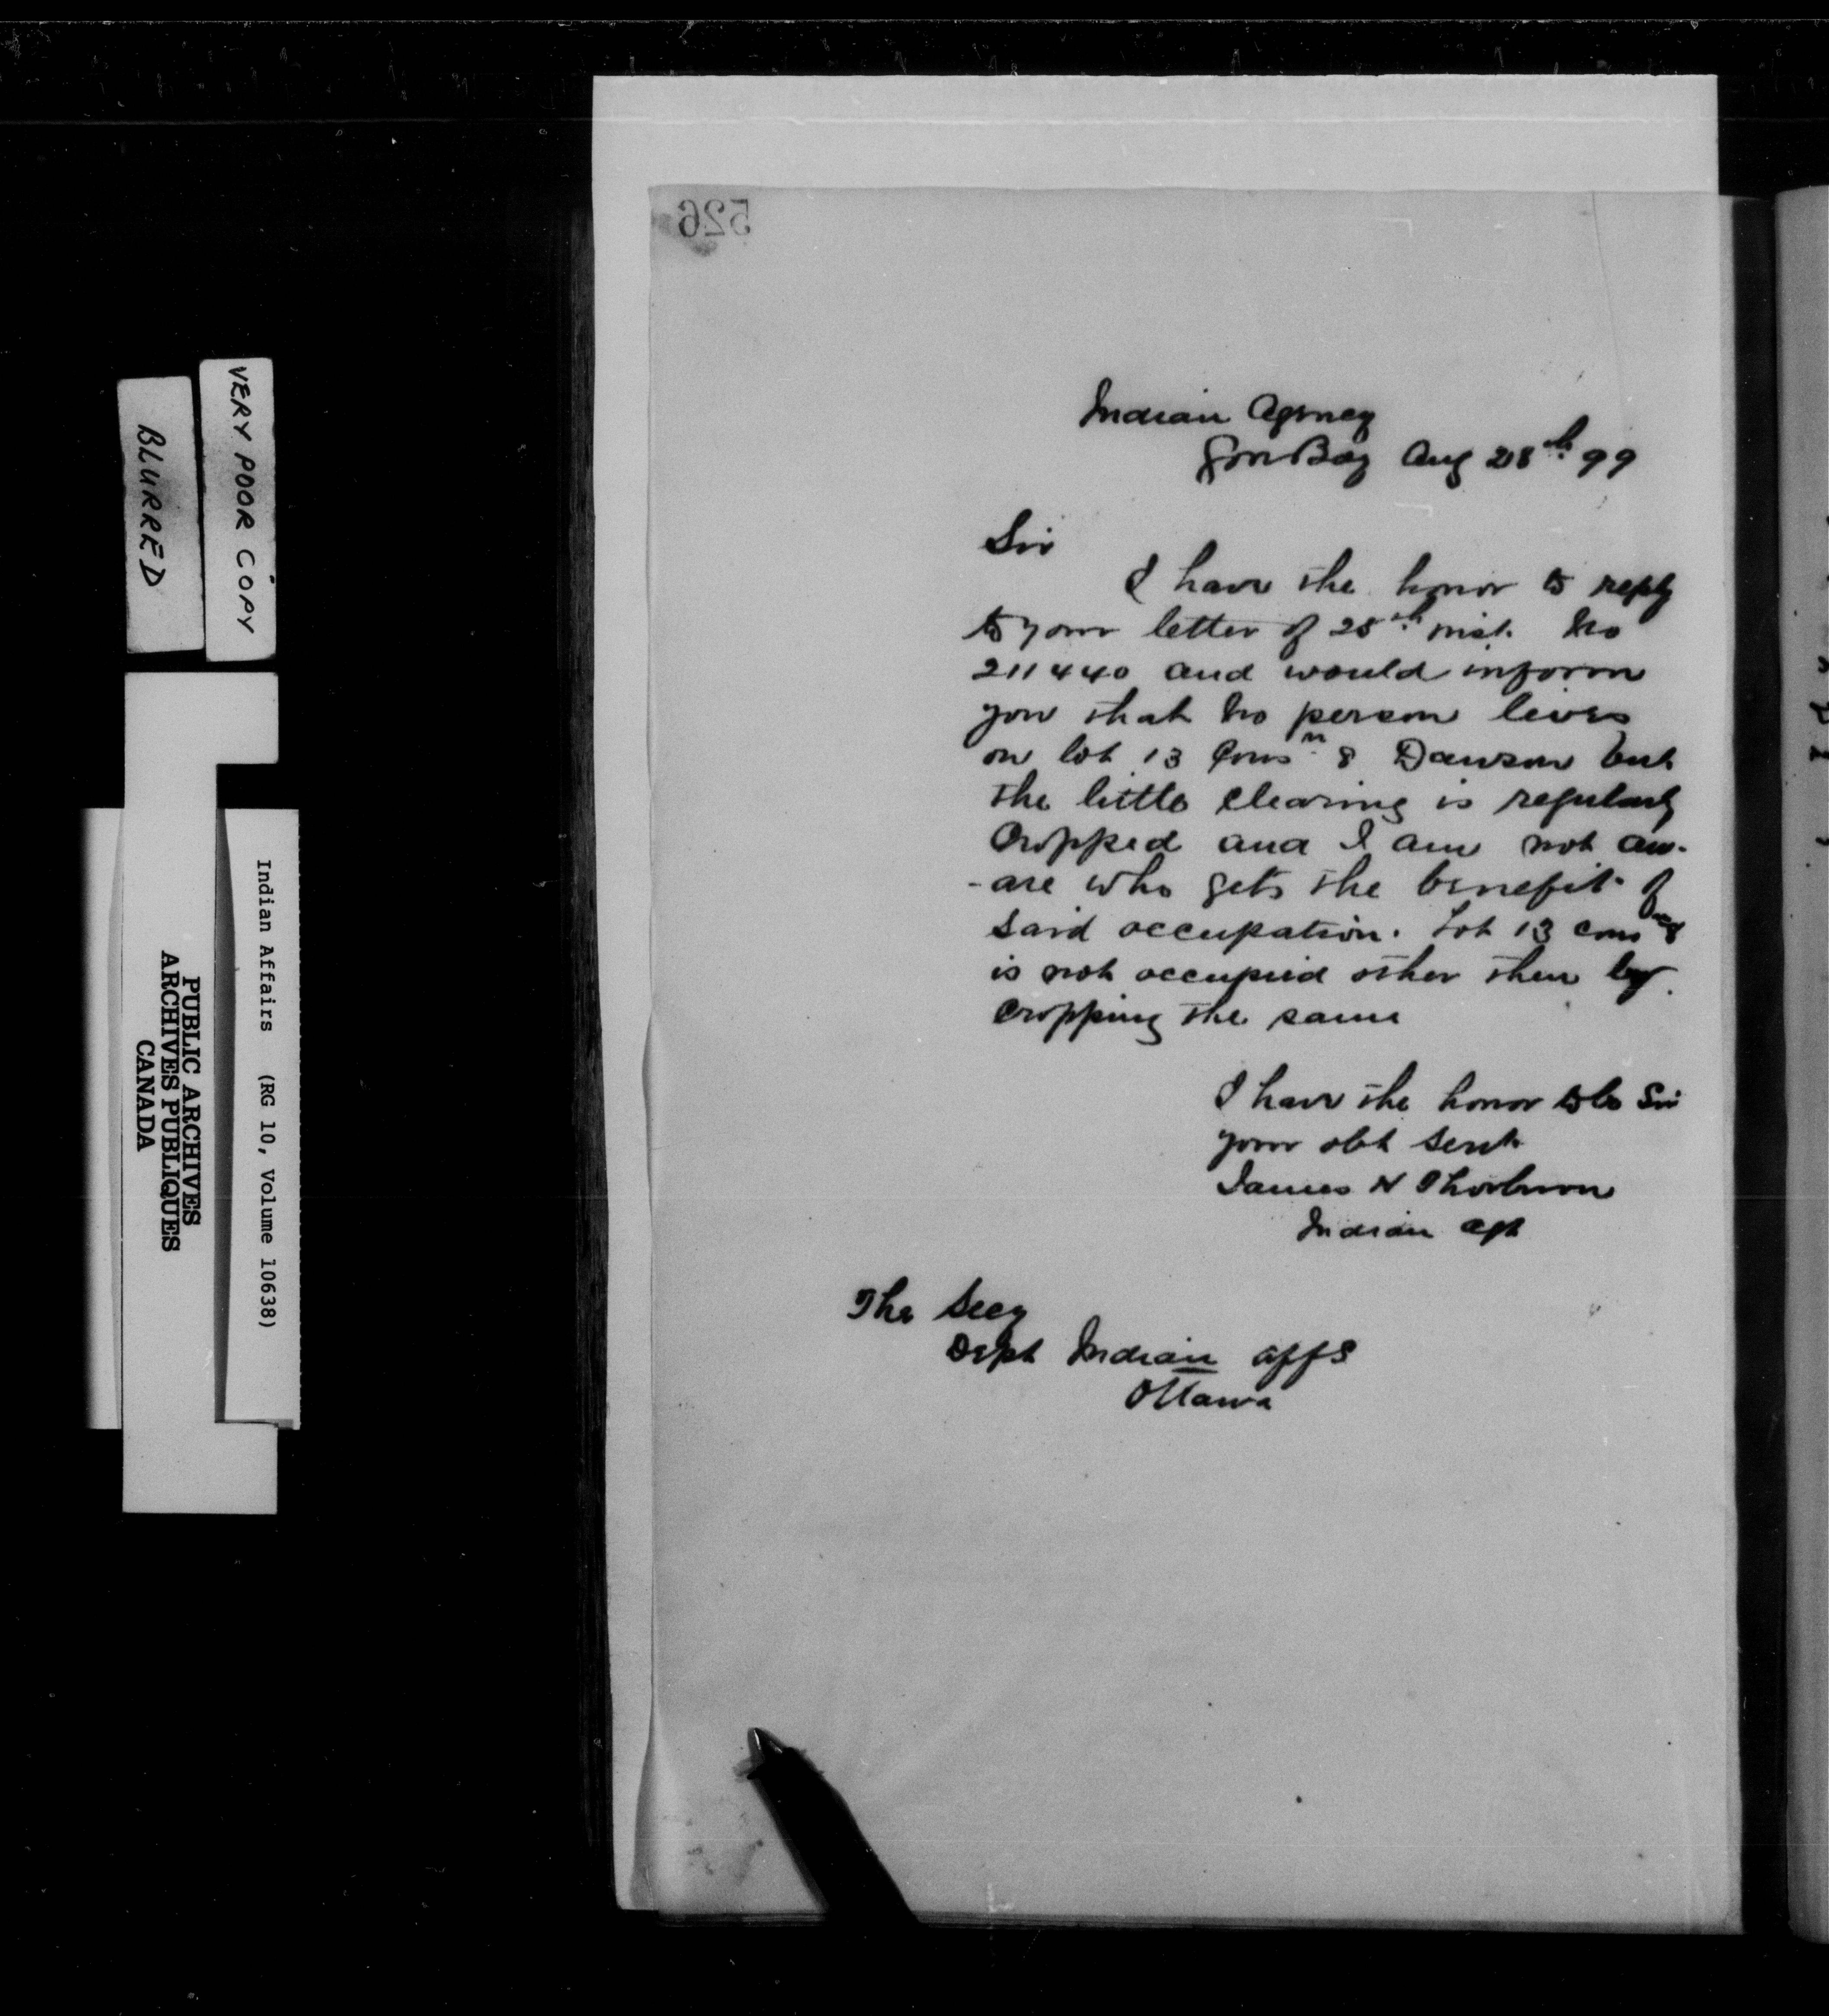 VERY POOR COPY
BLURRED
Indian Affairs (RG 10, Volume 10638)
PUBLIC ARCHIVES
ARCHIVES PUBLIQUES
CANADA
526
Indian Agency
Gore Bay Aug 28th 99
Sir
I have the honor to reply
to your letter of 25th inst. No
211440 and would inform
you that no person lives
on lot 13 Cons n 8 Dawson but
the little clearing is regularly
Cropped and I am not aw-
-are who gets the benefit of
said occupation. Lot 13 cons 8
is not occupied other then by
cropping the same
I have the honor to be Sir
your obt Servt
James H Thorburn
Indian Agt
The Secy
Dept Indian Affs
Ottawa